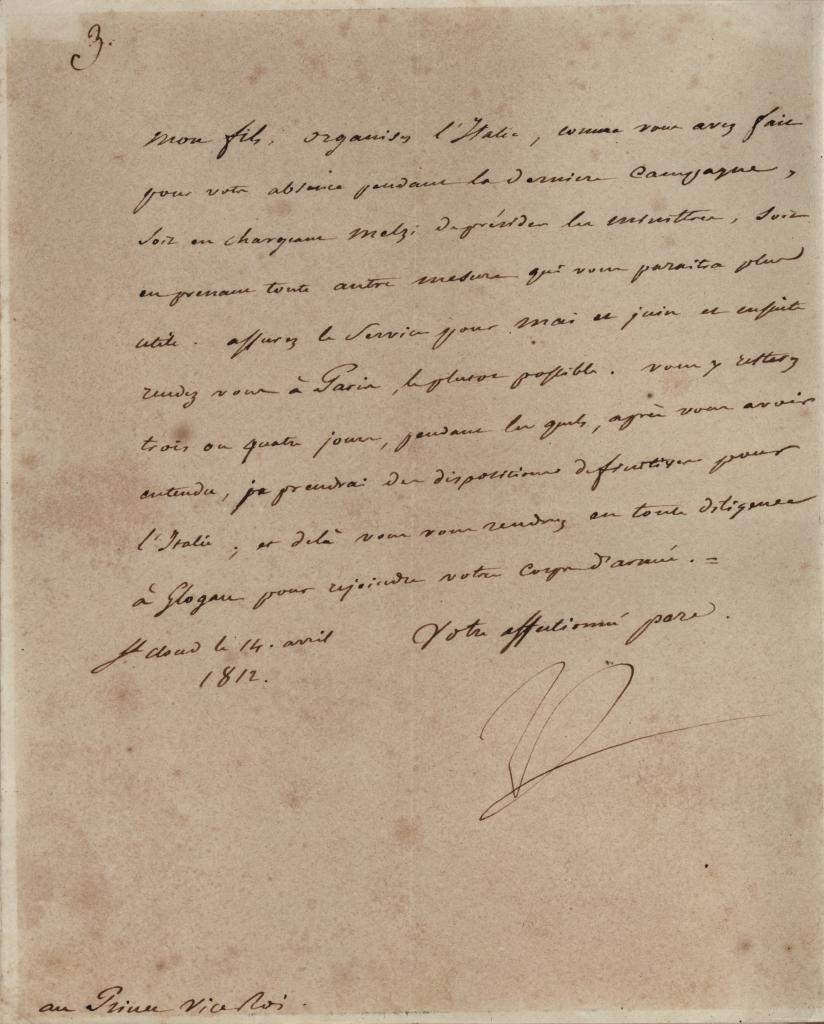 3.
Mon fils, organisez l'Italie, comme vous avez fait
pour votre absence pendant la derniere Campagne,
Soit en chargeant Melzi de présider les ministres, Soit
en prenant toute autre mesure qui vous paraitra plus
utile. assurez le Service pour mai et juin et ensuite
rendez vous à Paris, le plutot possible. vous y resterez
trois ou quatre jours, pendant les quels, après vous avoir
entendu, je prendrai des dispositions définitives pour
l'Italie, et delà vous vous rendrez en toute diligence
à Glogau pour rejoindre votre Corps d'armée. =
St cloud le 14. avril
1812.
Votre affectionné pere.
au Prince Vice Roi.